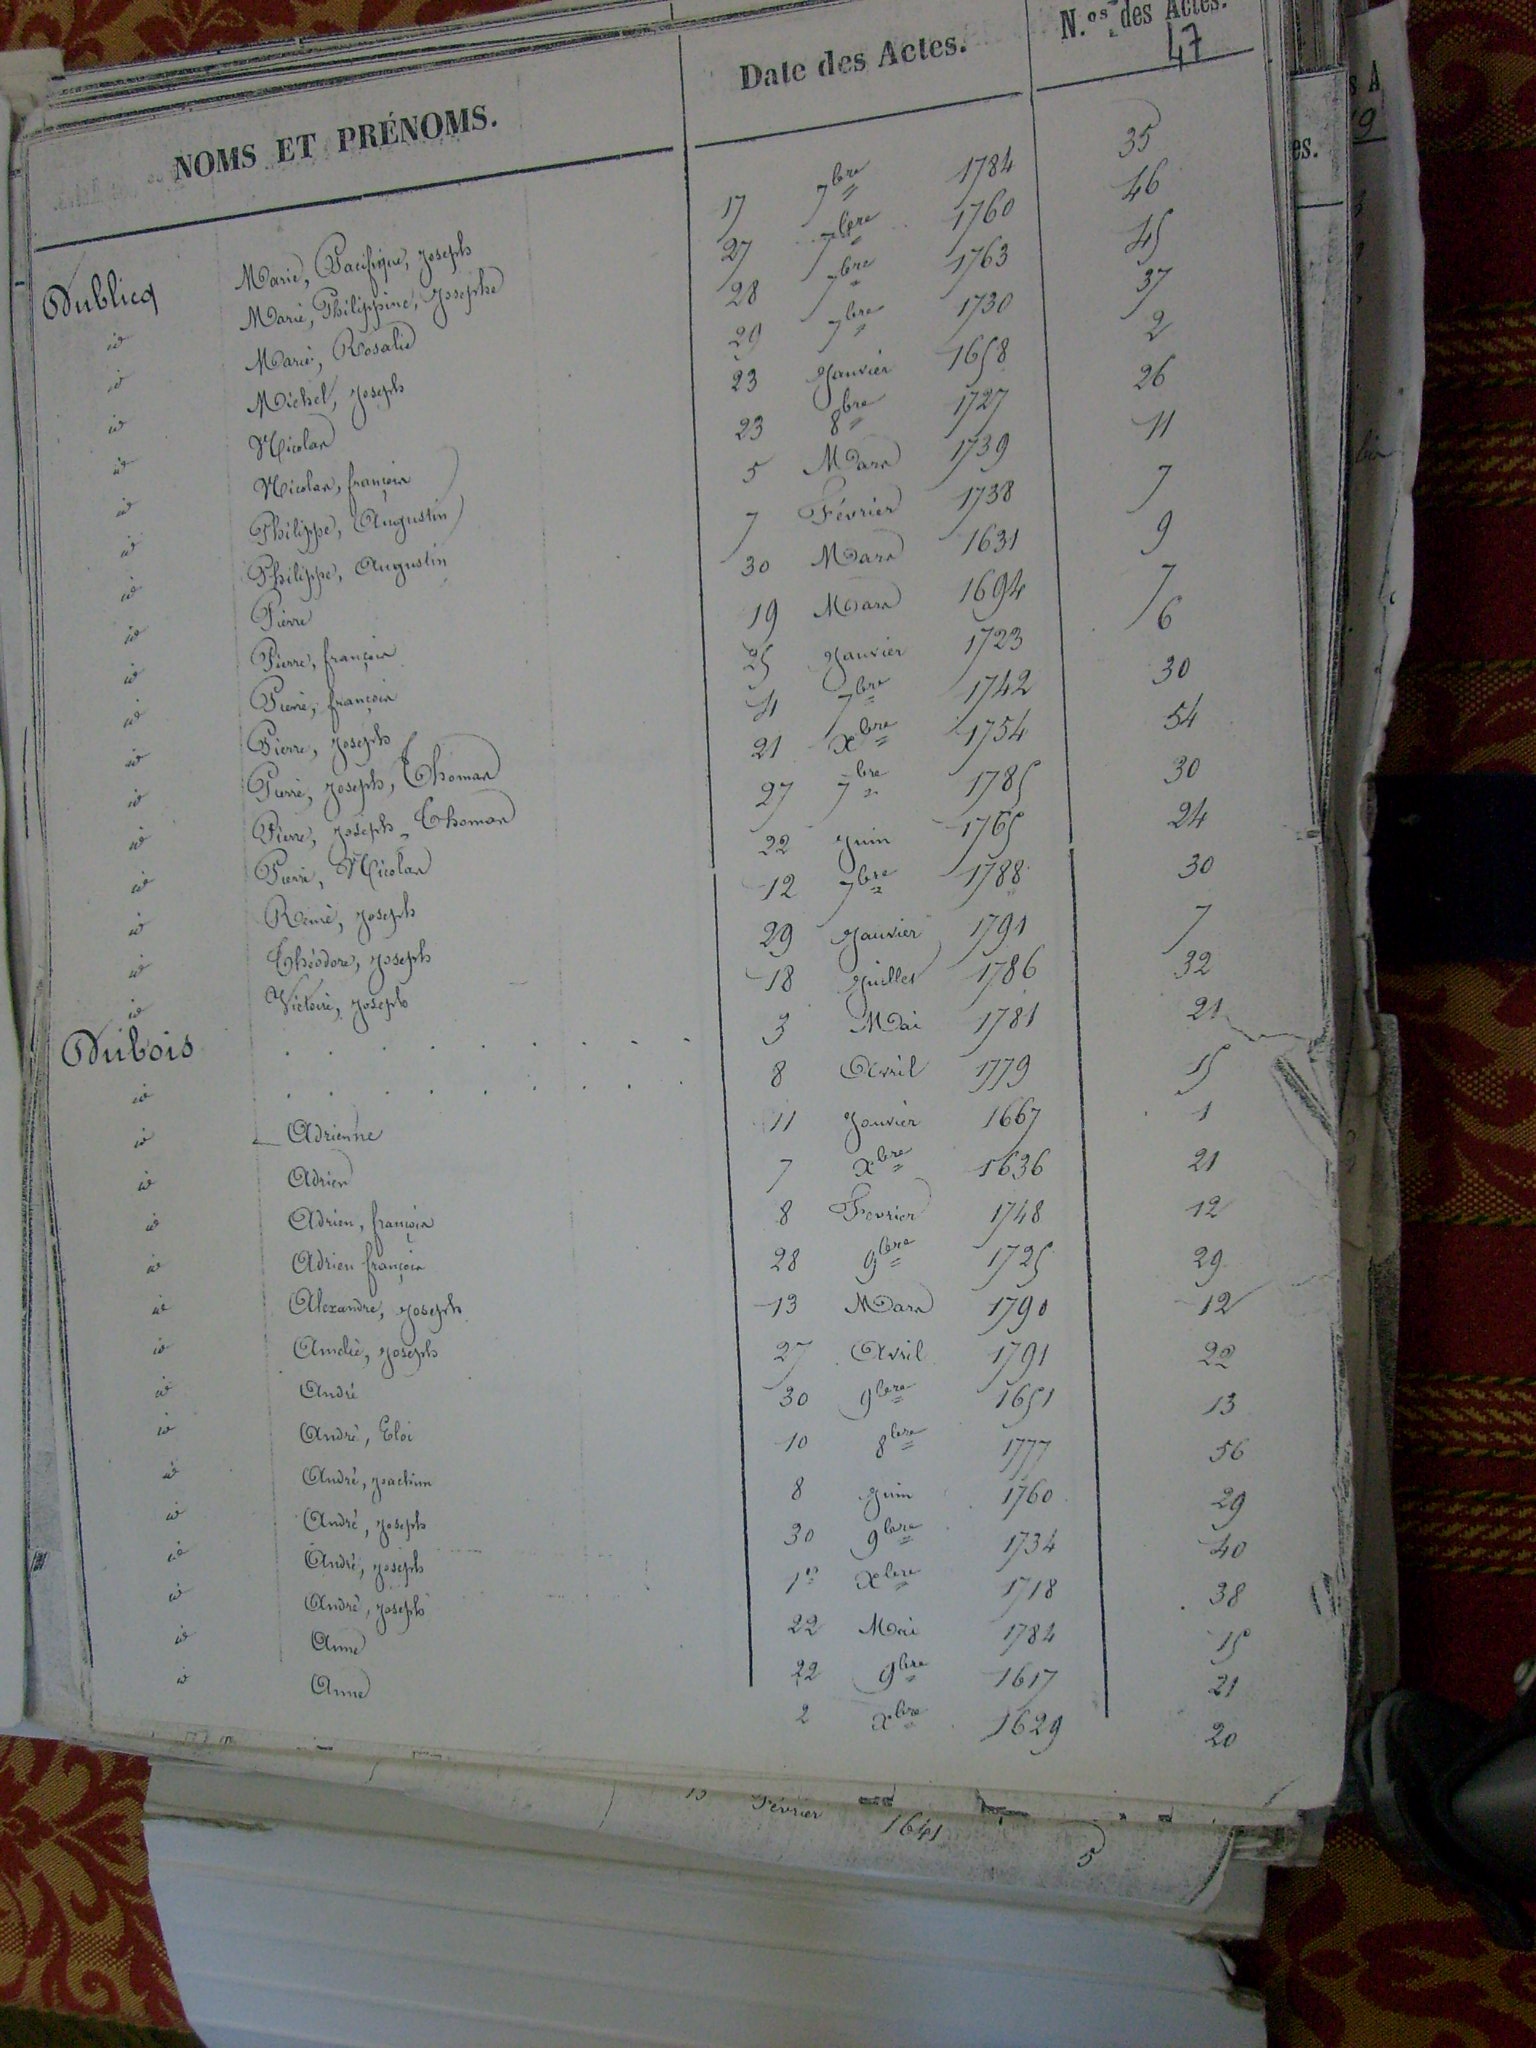 NOMS ET PRÉNOMS. Date des Actes. N.os des Actes.
47
Dublicq Marie, Pacifique, Joseph 17 7bre 1784 35
id Marie, Philippine, Josephe 27 7bre 1760 46
id Marie, Rosalie 28 7bre 1763 45
id Michel, Joseph 29 7bre 1730 37
id Nicolas 23 Janvier 1658 2
id Nicolas, françois 23 8bre 1727 26
id Philippe, Augustin 5 Mars 1739 11
id Philippe, Augustin 7 Février 1738 7
id Pierre 30 Mars 1631 9
id Pierre, françois 19 Mars 1694 7
id Pierre, françois 25 Janvier 1723 6
id Pierre, Joseph 4 7bre 1742 30
id Pierre, Joseph, Thomas 21 Xbre 1754 54
id Pierre, Joseph, Thomas 27 7bre 1785 30
id Pierre, Nicolas 22 Juin 1765 24
id Rémie, Joseph 12 7bre 1788 30
id Théodore, Joseph 29 Janvier 1791 7
id Victoire, Joseph 18 Juillet 1786 32
Dubois . . . . . . . . . 3 Mai 1781 21
id . . . . . . . . . 8 Avril 1779 15
id Adrienne 11 Janvier 1667 1
id Adrien 7 Xbre 1636 21
id Adrien, françois 8 Fevrier 1748 12
id Adrien françois 28 9bre 1725 29
id Alexandre, Joseph 13 Mars 1790 12
id Amelie, Joseph 27 Avril 1791 22
id André 30 9bre 1651 13
id André, Eloi 10 8bre 1777 56
id André, Joachim 8 Juin 1760 29
id André, Joseph 30 9bre 1734 40
id André, Joseph 1er Xbre 1718 38
id André, Joseph 22 Mai 1784 15
id Anne 22 9bre 1617 21
id Anne 2 Xbre 1629 20
Février 1641 5